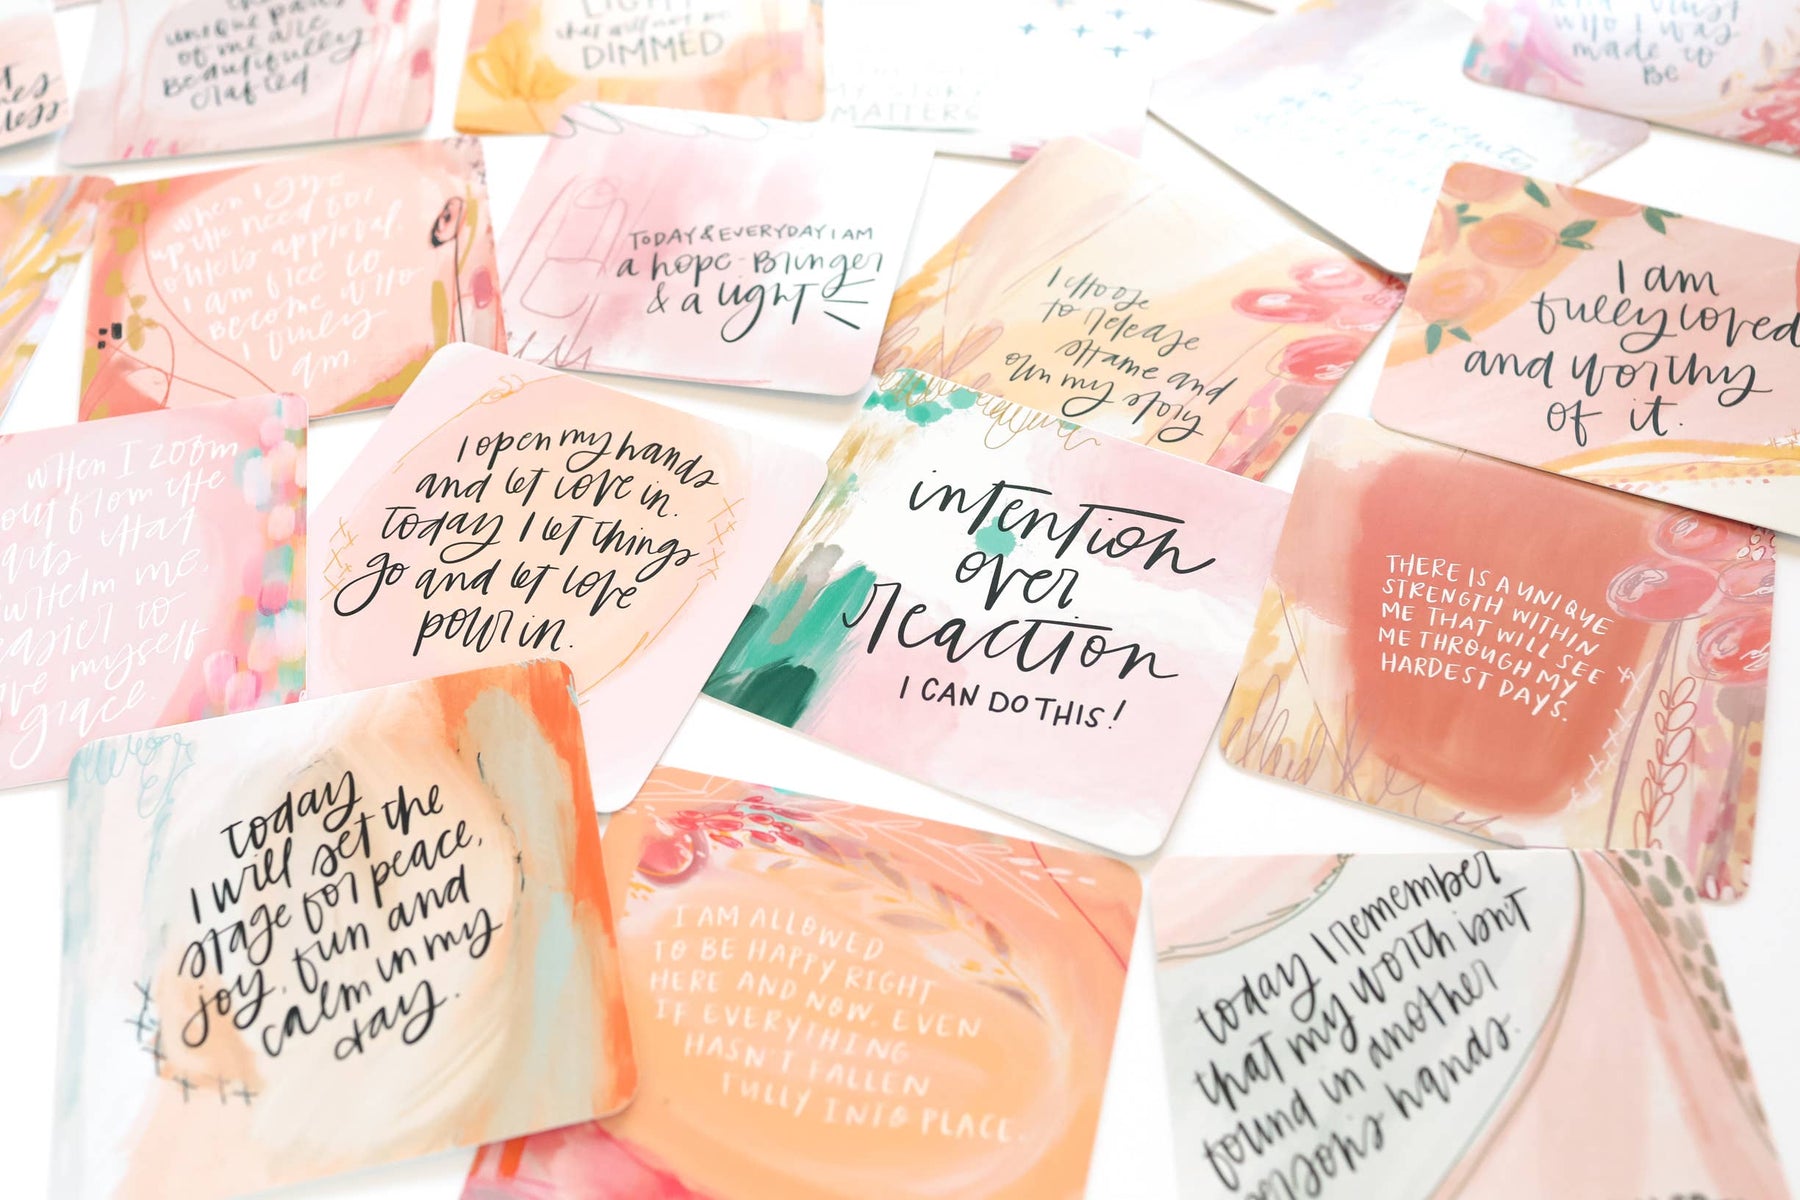 unique parts
of me are
beautifully
crafted
LIGHT
that will not be
DIMMED
MY STORY
MATTERS
who I was
made to
be
when I give
up the need for
other's approval,
I am free to
become who
I truly
am.
TODAY & EVERYDAY I AM
a hope-Bringer
& a light
I choose
to release
shame and
own my story
I am
fully loved
and worthy
of it.
when I zoom
out from the
that
me,
easier to
myself
grace.
I open my hands
and let love in.
today I let things
go and let love
pour in.
intention
over
reaction
I CAN DO THIS!
THERE IS A UNIQUE
STRENGTH WITHIN
ME THAT WILL SEE
ME THROUGH MY
HARDEST DAYS.
today
I will set the
stage for peace,
joy, fun and
calm in my
day.
I AM ALLOWED
TO BE HAPPY RIGHT
HERE AND NOW, EVEN
IF EVERYTHING
HASN'T FALLEN
FULLY INTO PLACE.
today I remember
that my worth isn't
found in another
person's hands.